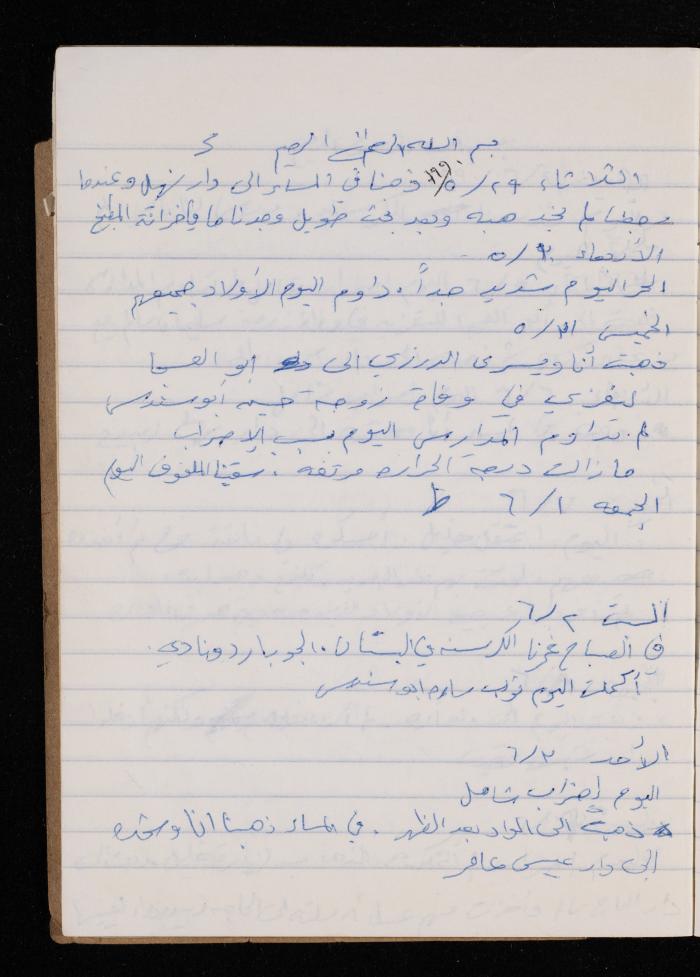 بسم الله الرحمن الرحيم
الثلاثاء ٢٩/٥/١٩٩٠ ذهبنا في المساء الى دار نهيل وعندما
رجعنا لم نجد هبه وبعد بحث طويل وجدناها في خزانة المطبخ
الأربعاء ٣٠/٥
الحر اليوم شديد جداً. داوم اليوم الأولاد جميعهم
الخميس ٣١/٥
ذهبت أنا ويسرى الدرزي الى ابو العسجا
لنعزي في وفاة زوجة حسيه أبو سندس
لم تداوم المدارس اليوم بسبب الإضراب
ما زالت درجة الحراره مرتفعه. سقينا الملفوف اليوم
الجمعه ١/٦
السبت ٢/٦
في الصباح غمرنا الكرسنه في البستان. الجو بارد ونادي.
أكملت اليوم ثوب ساره ابو سندس
الأحد ٣/٦
اليوم إضراب شامل
ذهبت الى المواد بعد الظهر. في المساء ذهبنا انا و
الى دار عيسى عامر